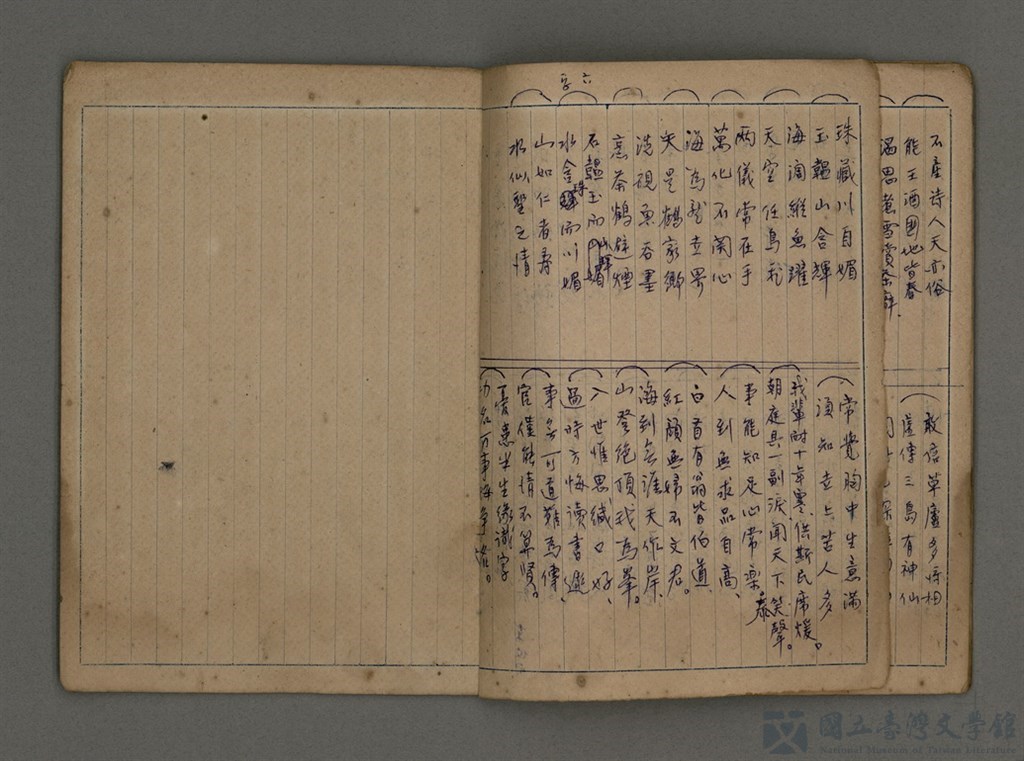 六字
不產诗人天亦俗
能王酒國地皆春
敢信草廬多將相
僅傳三島有神仙
珠藏川自媚
玉韞山含輝
海闊縱魚躍
天空任鳥飛
兩儀常在手
萬化不関心
海為龍世界
天是鶴家鄉
洗硯魚吞墨
烹茶鶴避煙
石韞玉而山輝
水含珠而川媚
山如仁者壽
水似聖之情
常覺胸中生意滿
須知世上苦人多
我輩耐十年寒、供斯民席煖。
朝庭具一副淚、聞天下笑聲。
事能知足心常樂泰
人到無求品自高、
白首有翁皆伯道
紅顏無婦不文君。
海到無涯天作岸、
山登絕頂我為峯。
入世惟思緘口好、
過時方悔讀書遲、
事多可道難為傳、
官僅能情不算賢。
憂患半生緣識字
國立臺灣文學館
National Museum of Taiwan Literature